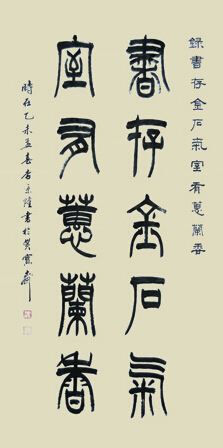 錄書存金石氣室有蕙蘭香
書存金石氣
室有蕙蘭香
時在乙未孟春書於齋